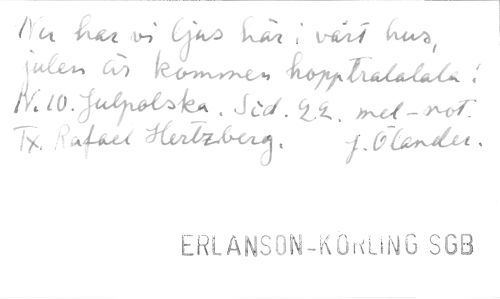 Nu har vi ljus här i vårt hus,
julen är kommen hopptralalala!
N. 10. Julpolska. Sid. 22. mel-not.
Tx. Rafael Hertzberg. J. Ölander.
ERLANSON-KÖRLING SGB